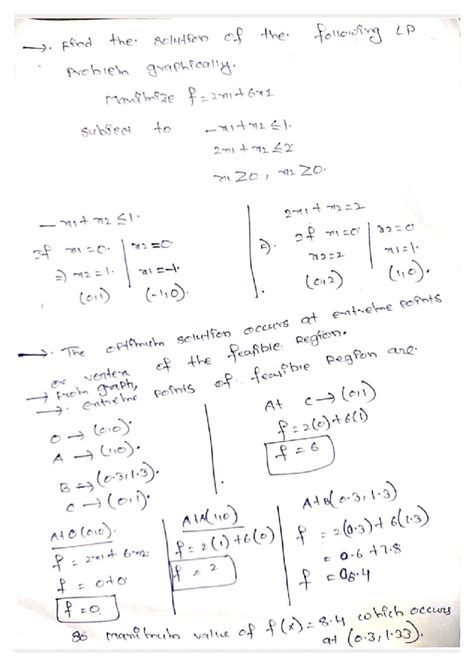 →. Find the solution of the following LP
problem graphically.
Maximize f = 2x1 + 6x2
subject to -x1 + x2 ≤ 1.
2x1 + x2 ≤ 2
x1 ≥ 0, x2 ≥ 0.
-x1 + x2 ≤ 1.
If x1 = 0. | x2 = 0
⇒ x2 = 1. | x1 = -1.
(0,1) | (-1,0).
2x1 + x2 = 2
⇒. If x1 = 0 | x2 = 0
x2 = 2 | x1 = 1.
(0,2) | (1,0).
→. The optimum solution occurs at extreme points
or vertex of the feasible Region.
→ From graph,
→. extreme points of feasible Region are.
O → (0,0).
A → (1,0).
B → (0.3,1.3).
C → (0,1).
At C → (0,1)
f = 2(0) + 6(1)
f = 6
At O (0,0).
f = 2x1 + 6x2
f = 0+0
f = 0.
At A(1,0)
f = 2(1) + 6(0)
f = 2
At B(0.3,1.3)
f = 2(0.3) + 6(1.3)
= 0.6 + 7.8
f = 8.4
so maximum value of f(x) = 8.4 which occurs
at (0.3,1.33).